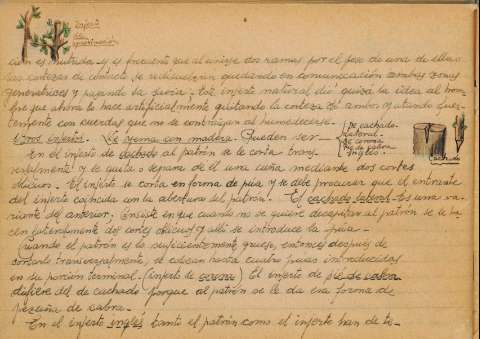 Injerto
de
aproximación
cien es nutrida y es frecuente que al unirse dos ramas por el peso de una de ellas
las cortezas en contacto se redu quedando en comunicación ambas zonas
generatrices y pasando la savia. Este injerto natural dió quizá la idea al hom-
bre que ahora lo hace artificialmente quitando la corteza de ambos y atando fuer-
temente con cuerdas que no se contraigan al humedecerse.
Otros injertos. De yema con madera. Pueden ser
De cachado
lateral
De corona
Pie de cabra
Inglés
Cachado
En el injerto de cachado al patrón se le corta trans-
versalmente y se quita o separa de él una cuña mediante dos cortes
oblicuos. El injerto se corta en forma de púa y se debe procurar que el entrante
del injerto coincida con la abertura del patrón. El cachado lateral es una va-
riante del anterior. Consiste en que cuando no se quiere decapitar al patrón se le ha-
cen lateralmente dos cortes oblicuos y allí se introduce la púa.
Cuando el patrón es lo suficientemente grueso, entonces después de
cortarlo transversalmente, se colocan hasta cuatro púas introducidas
en su porción terminal. (injerto de corona) El injerto de pie de cabra
difiere del de cachado porque al patrón se le da esa forma de
pezuña de cabra.
En el injerto inglés tanto el patrón como el injerto han de te-